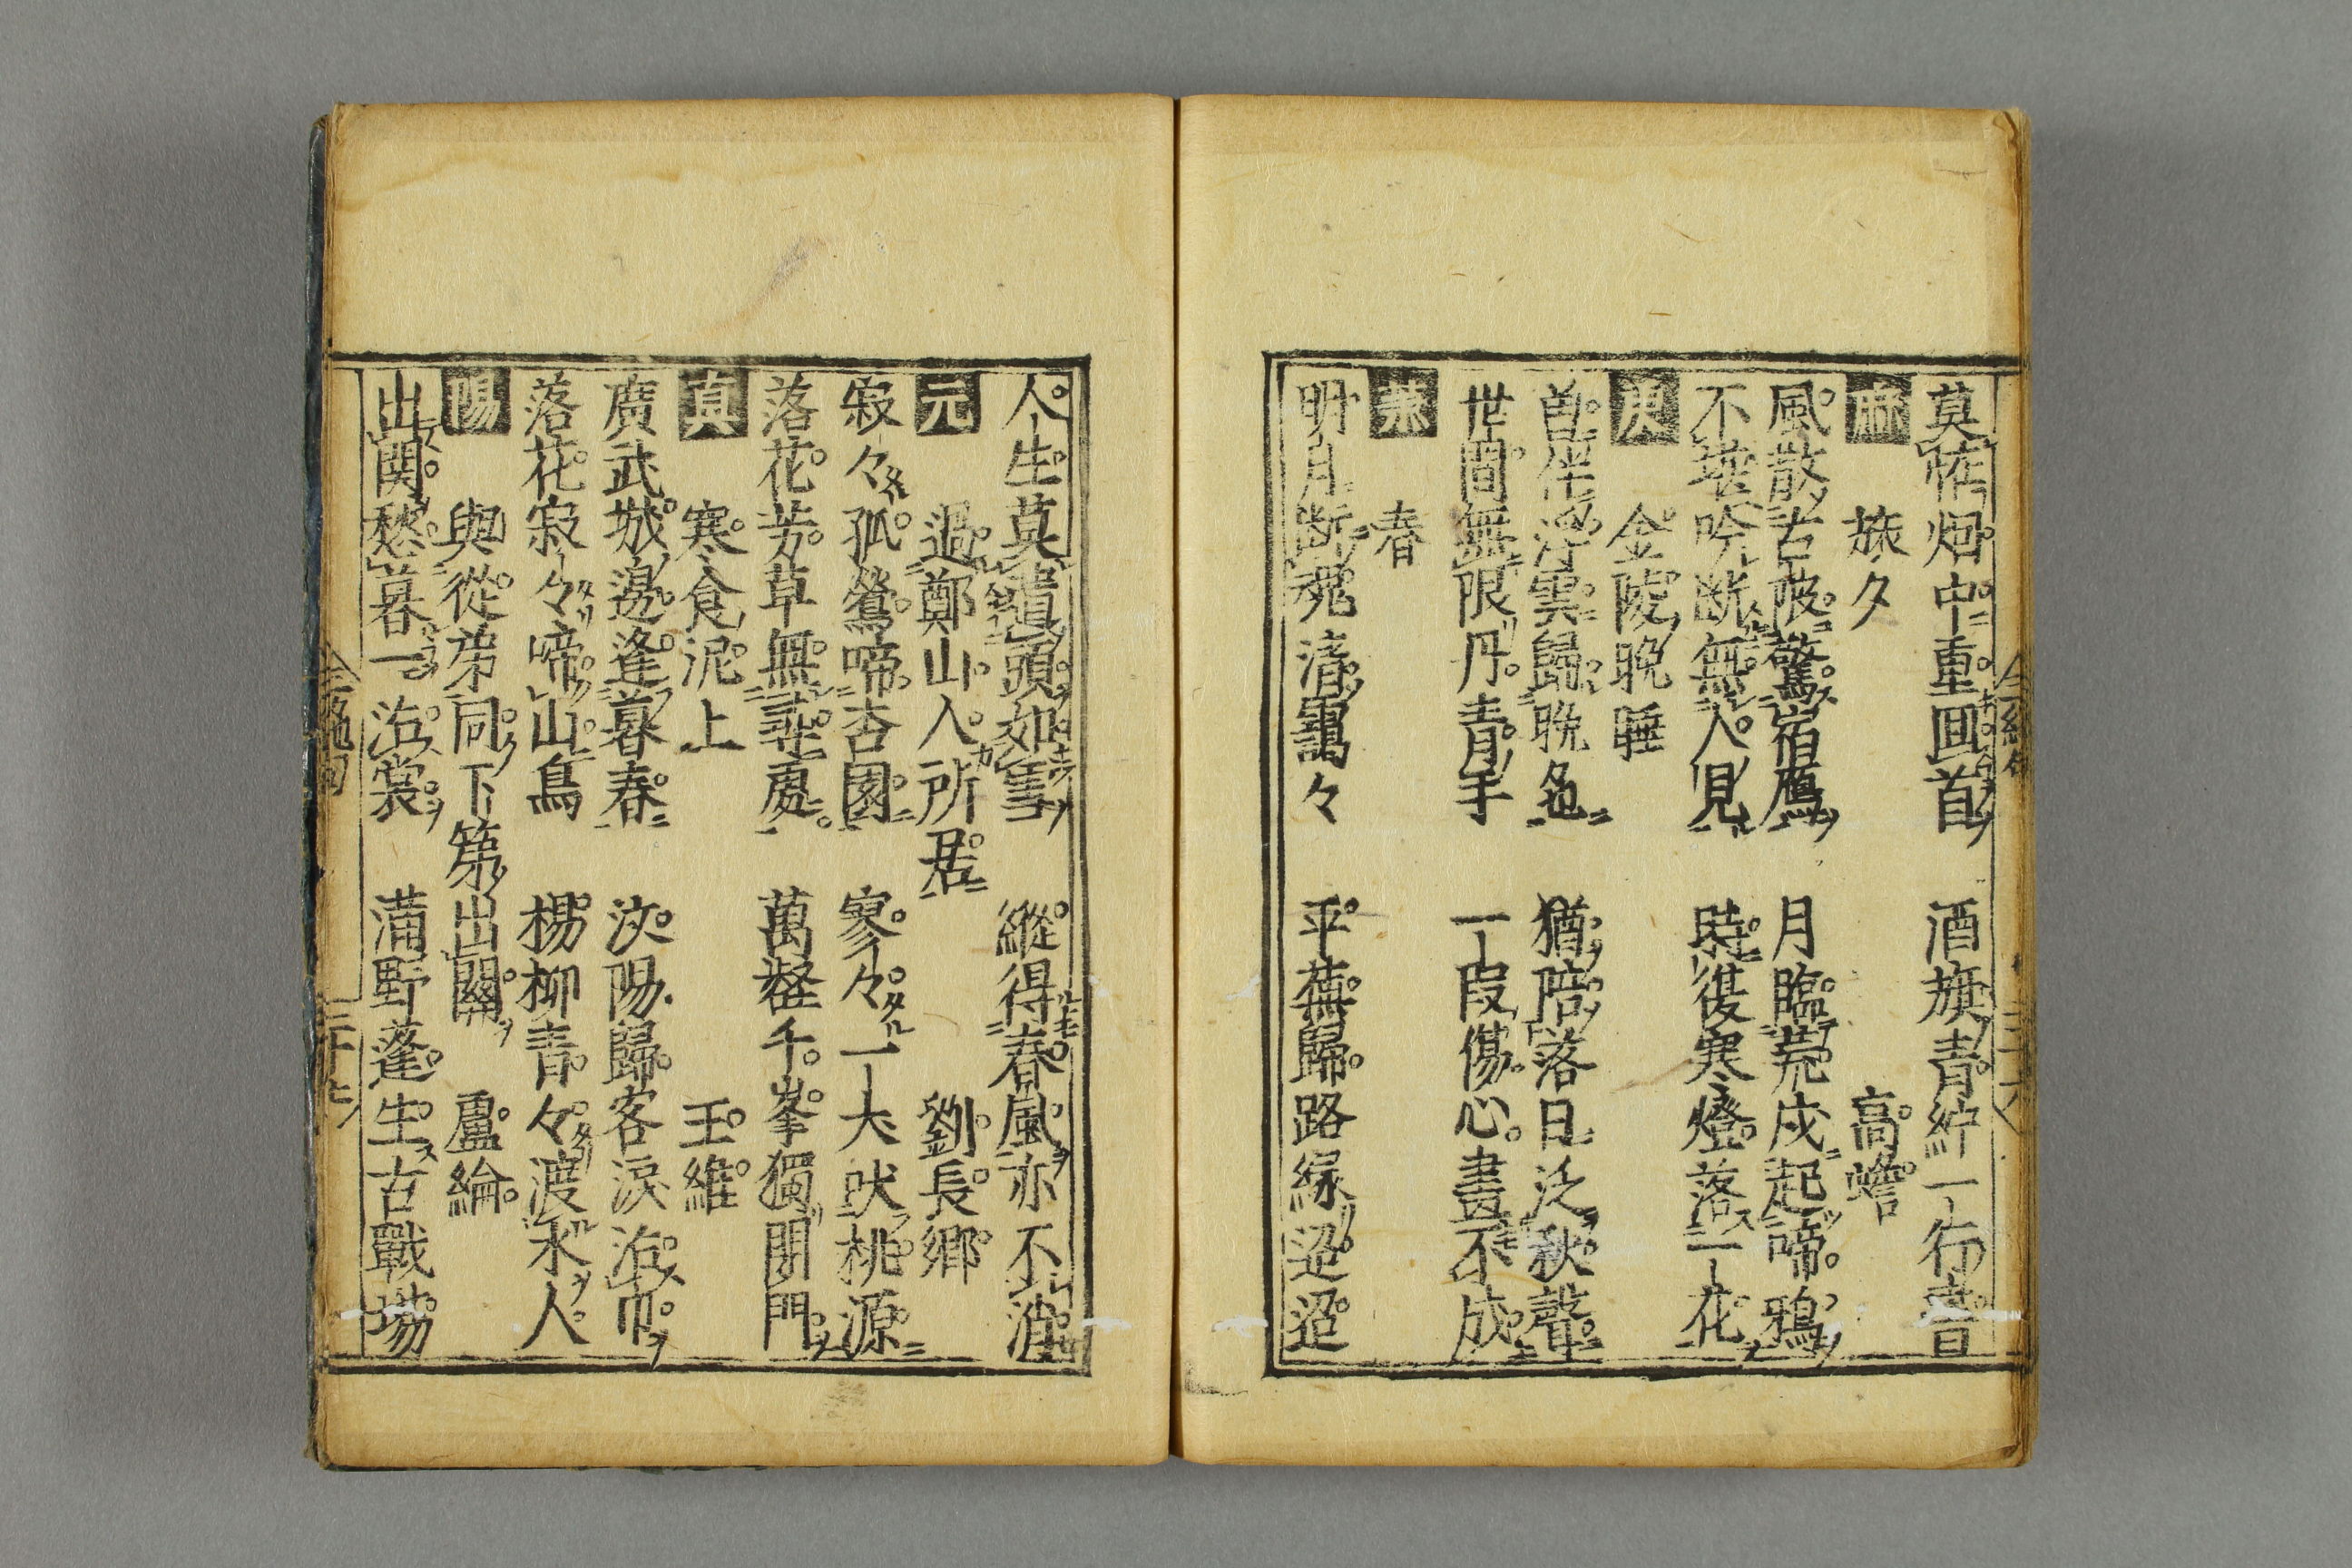 莫恠烟中重囬首　酒旗青紵一行書
麻　旅夕　高蟾
風散古陂驚宿鴈　月臨荒戍起啼鴉
不堪吟断無人見　時復寒燈落一花
庚　金陵晚睡
曽伴浮雲歸晩色　猶陪落日泛秋聲
世間無限丹青手　一叚傷心畫不成
蕭　春
明月断魂清靄々　平蕪歸路緑迢迢
人生莫遣頭如雪　縱得春風亦不消
元　過鄭山人所居　劉長卿
寂々孤鶯啼杏園　寥々一犬吠桃源
落花芳草無尋處　萬壑千峯獨閉門
真　寒食泥上　王維
廣武城邊逢暮春　汶陽歸客涙沾巾
落花寂々啼山鳥　楊柳青々渡水人
陽　與從弟同下第出關　盧綸
出関愁暮一沾裳　滿野蓬生古戰場